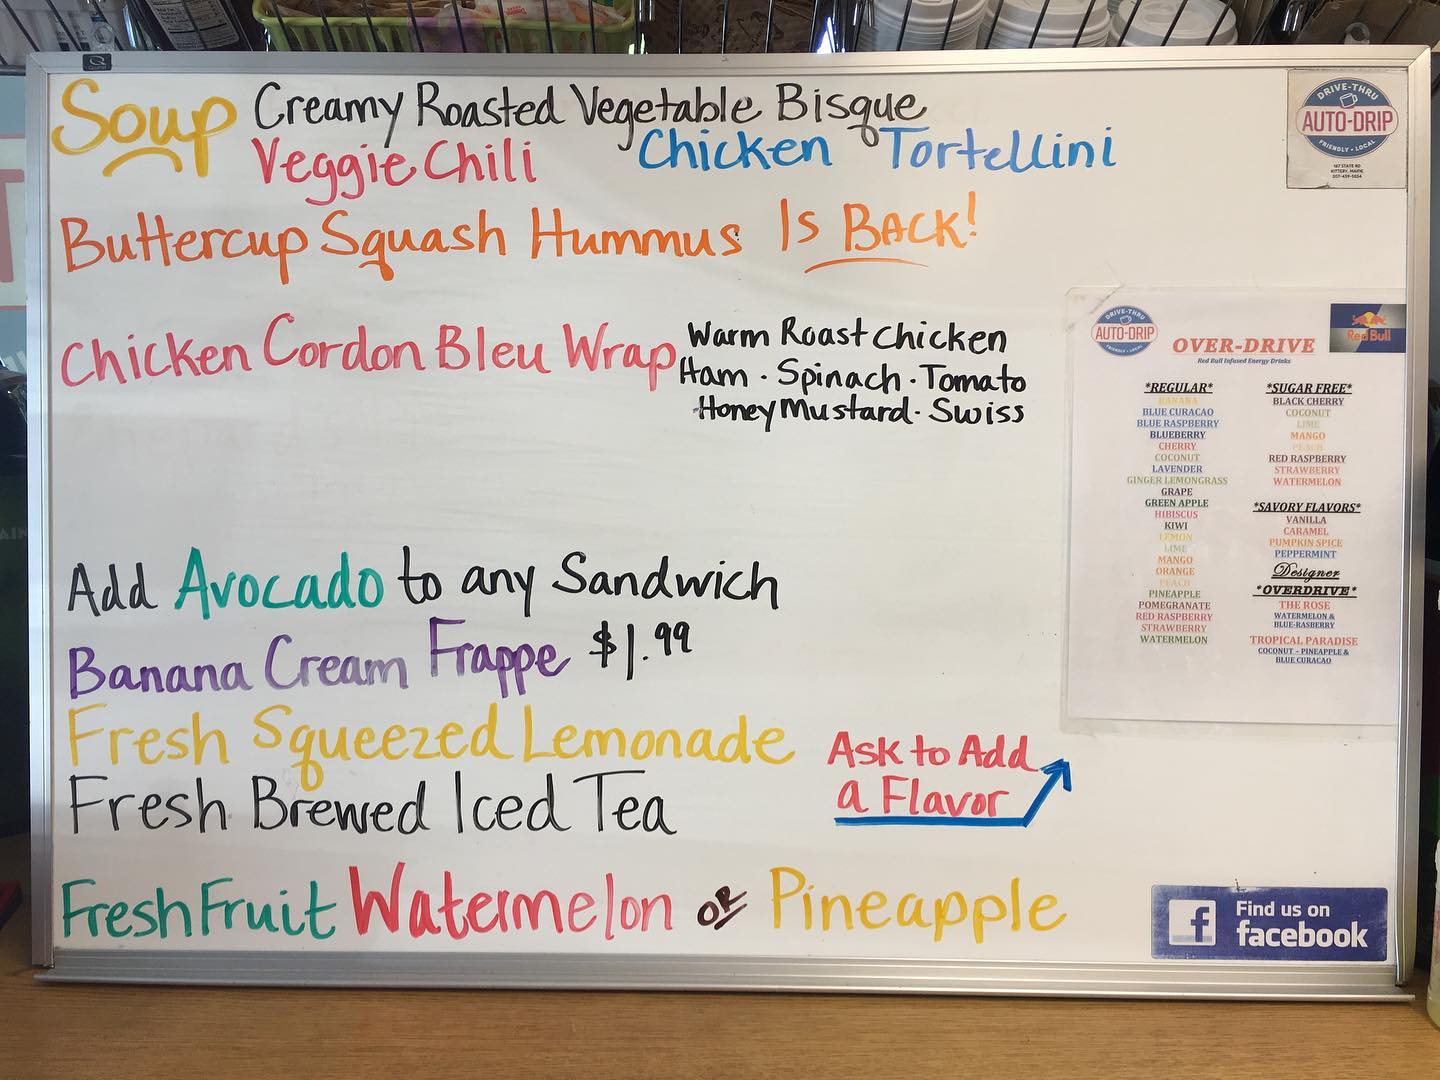 Soup Creamy Roasted Vegetable Bisque
Veggie Chili Chicken Tortellini
Buttercup Squash Hummus Is BACK!
Chicken Cordon Bleu Wrap
Warm Roast Chicken
Ham · Spinach · Tomato
Honey Mustard · Swiss
Add Avocado to any Sandwich
Banana Cream Frappe $1.99
Fresh Squeezed Lemonade
Fresh Brewed Iced Tea
Ask to Add
a Flavor
Fresh Fruit Watermelon OR Pineapple
DRIVE-THRU
AUTO-DRIP
FRIENDLY • LOCAL
167 STATE RD
KITTERY, MAINE
207-439-5654
DRIVE-THRU
AUTO-DRIP
FRIENDLY • LOCAL
Red Bull
OVER-DRIVE
Red Bull Infused Energy Drinks
*REGULAR*
BANANA
BLUE CURACAO
BLUE RASPBERRY
BLUEBERRY
CHERRY
COCONUT
LAVENDER
GINGER LEMONGRASS
GRAPE
GREEN APPLE
HIBISCUS
KIWI
LEMON
LIME
MANGO
ORANGE
PEACH
PINEAPPLE
POMEGRANATE
RED RASPBERRY
STRAWBERRY
WATERMELON
*SUGAR FREE*
BLACK CHERRY
COCONUT
LIME
MANGO
PEACH
RED RASPBERRY
STRAWBERRY
WATERMELON
*SAVORY FLAVORS*
VANILLA
CARAMEL
PUMPKIN SPICE
PEPPERMINT
Designer
*OVERDRIVE*
THE ROSE
WATERMELON &
BLUE-RASBERRY
TROPICAL PARADISE
COCONUT – PINEAPPLE &
BLUE CURACAO
f Find us on
facebook